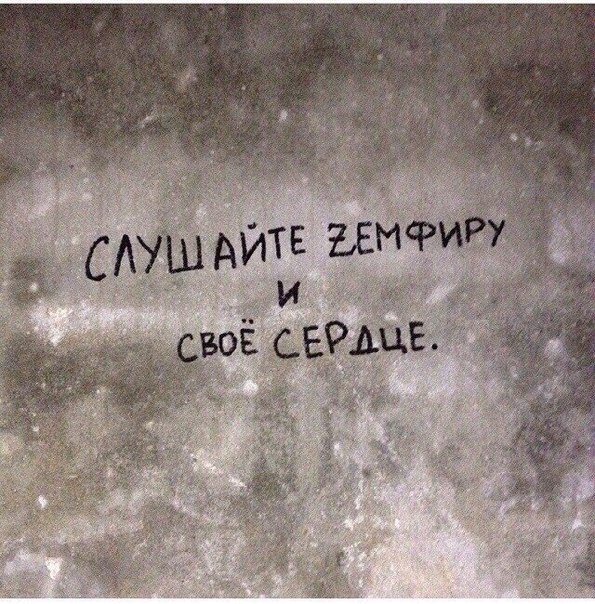 СЛУШАЙТЕ ZЕМФИРУ
И
СВОЁ СЕРДЦЕ.